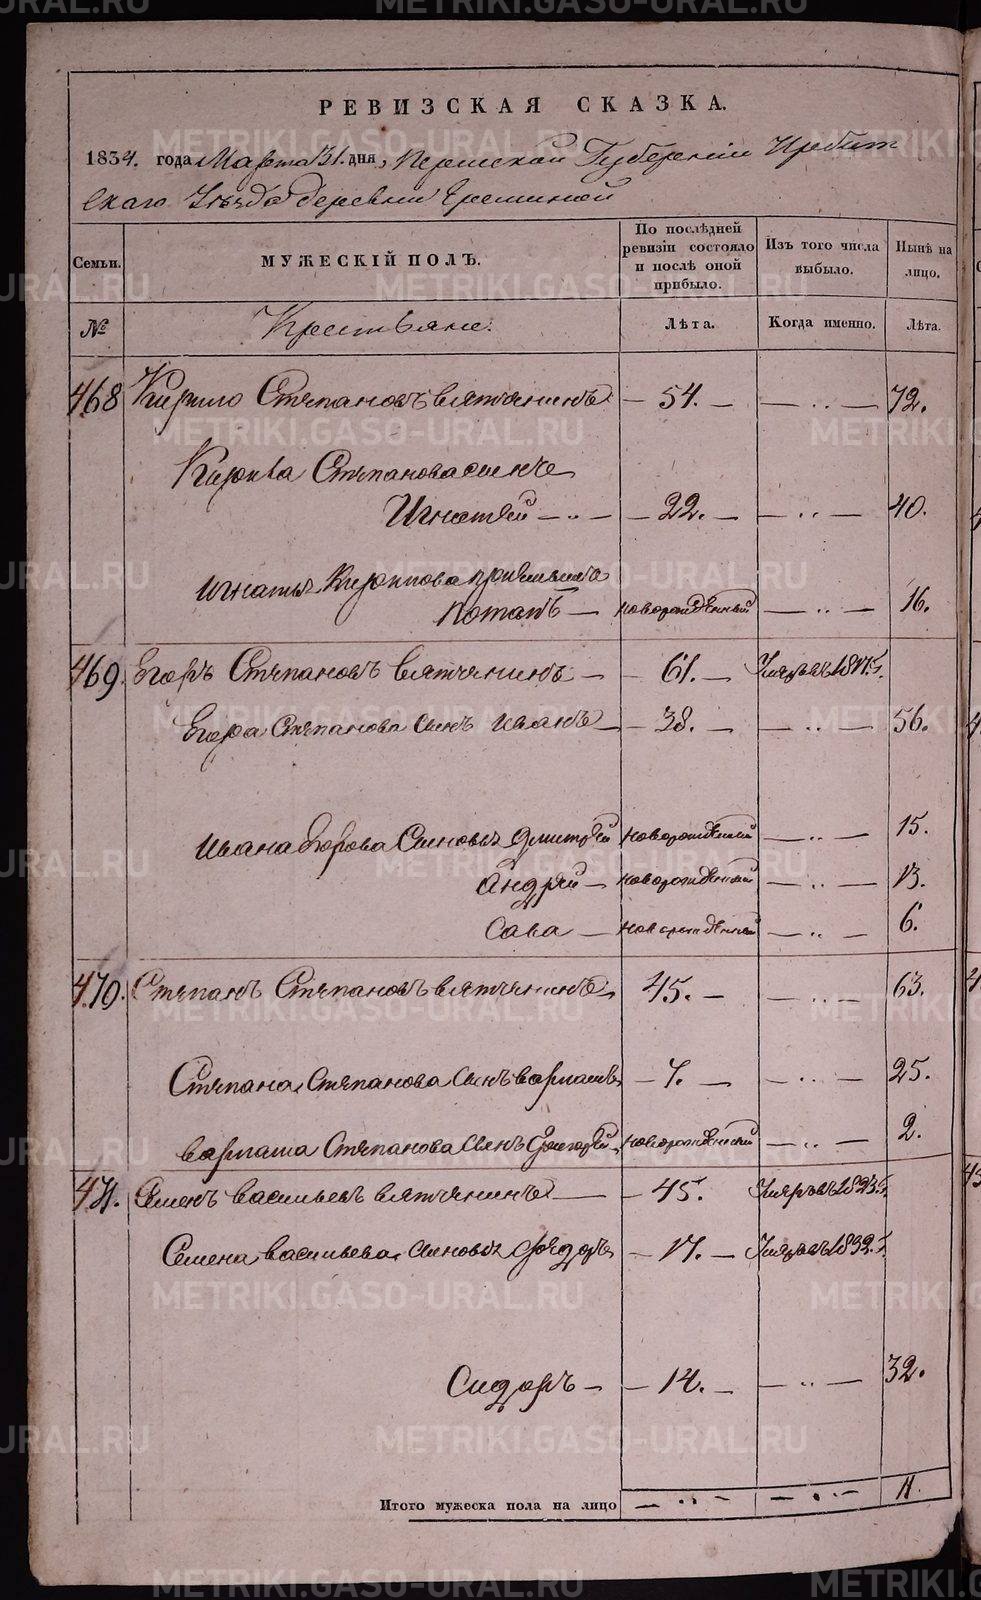 РЕВИЗСКАЯ СКАЗКА.
1834. года Марта 31. дня, Пермской Губернии Ирбит
скаго Уѣзда деревни
Семьи.
МУЖЕСКІЙ ПОЛЪ.
По послѣдней ревизіи состояло и послѣ оной прибыло.
Изъ того числа выбыло.
Нынѣ на лицо.
№
Крестьяне.
Лѣта.
Когда именно.
Лѣта.
468 Кирило Степановъ вятченинъ — 54. — — „ — 72.
Степанова сынъ
Игнатей — „ — — 22. — — „ — 40.
Игнатья
Потапъ — новорожденный — „ — 16.
469. Егоръ Степановъ вятченинъ — — 61. —
Егора Степанова сынъ Иванъ — — 38. — — „ — 56.
Ивана Егорова сыновья Дмитрей новорожденный — „ — 15.
Андрей — новорожденный — „ — 13.
Сава — новорожденный — „ — 6.
470. Степанъ Степановъ вятченинъ — 45. — — „ — 63.
Степана Степанова сынъ — 7. — — „ — 25.
Степанова сынъ новорожденный — „ — 2.
471. Семенъ Васильевъ вятченинъ — — 45. Умеръ въ 1823. г.
Семена Васильева сыновья Федоръ — 17. — Умеръ въ 1832. г.
Сидоръ — — 14. — — „ — 32.
Итого мужеска пола на лицо — „ — — „ — 11.
METRIKI.GASO-URAL.RU